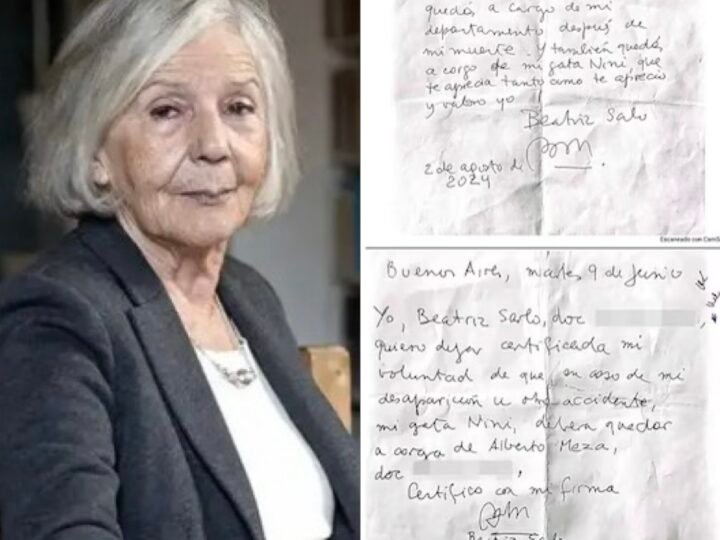 quedás a cargo de mi
departamento después de
mi muerte. Y también quedás
a cargo de mi gata Nini, que
te aprecia tanto como te aprecio
y valoro yo
Beatriz Sarlo
2 de agosto de
2024
Escaneado con CamS
Buenos Aires, martes 9 de Junio
Yo, Beatriz Sarlo, doc
quiero dejar certificada mi
voluntad de que, en caso de mi
desaparición u otro accidente,
mi gata Nini, deberá quedar
a cargo de Alberto Meza,
doc
Certifico con mi firma
Beatriz Sarlo